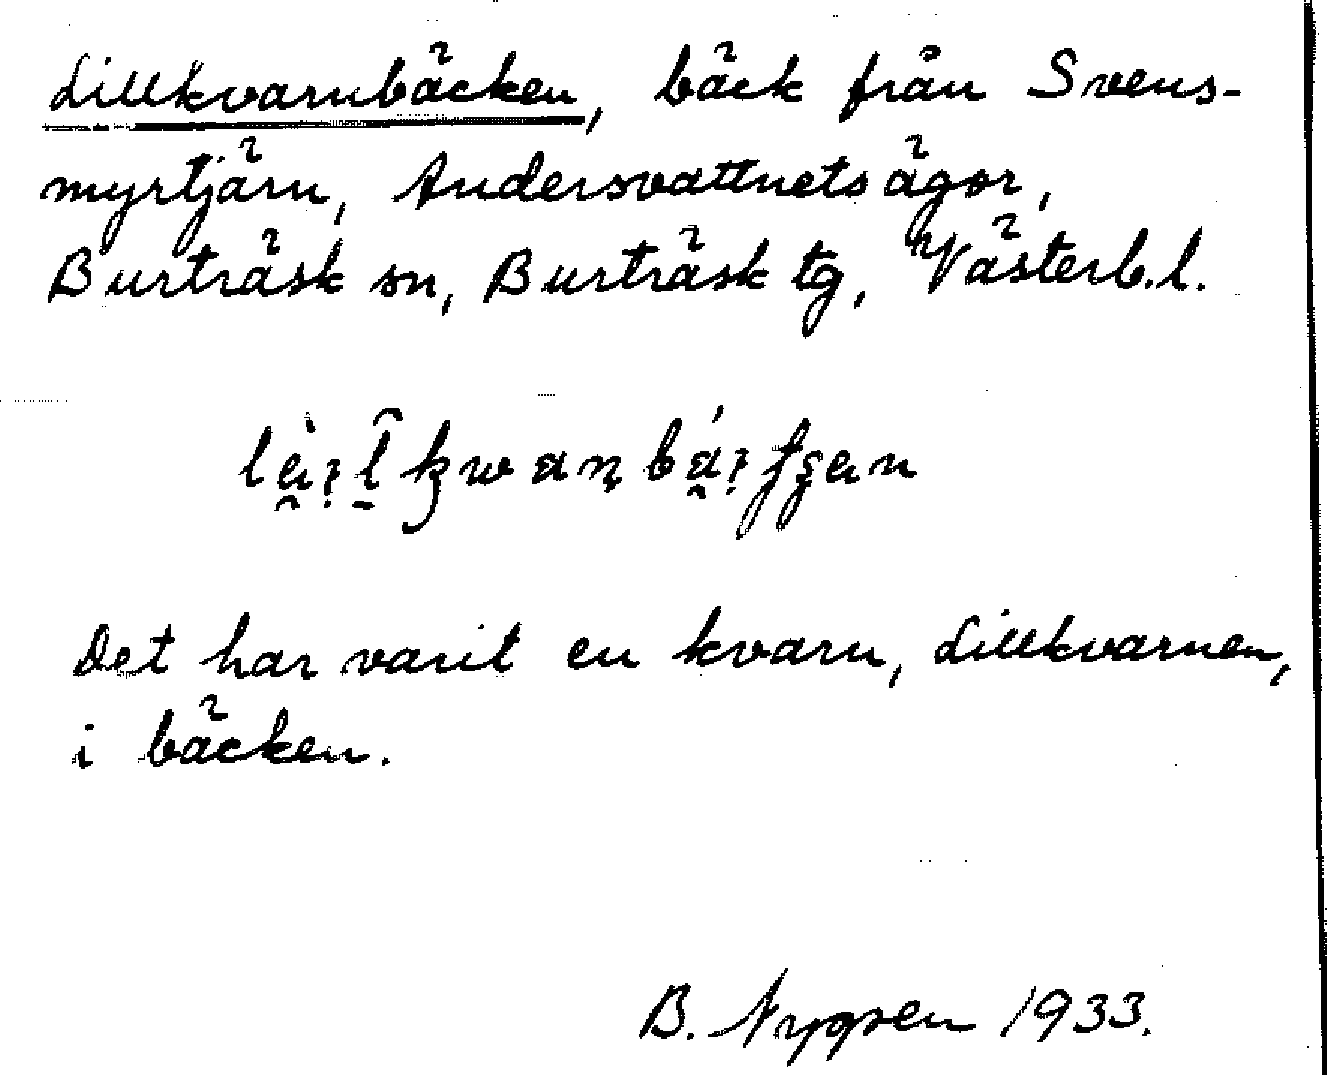 Lillkvarnbäcken, bäck från Svens-
myrtjärn, Andersvattnets ägor,
Burträsk sn, Burträsk tg, Västerb.l.
Det har varit en kvarn, Lillkvarnen,
i bäcken.
B. Nygren 1933.